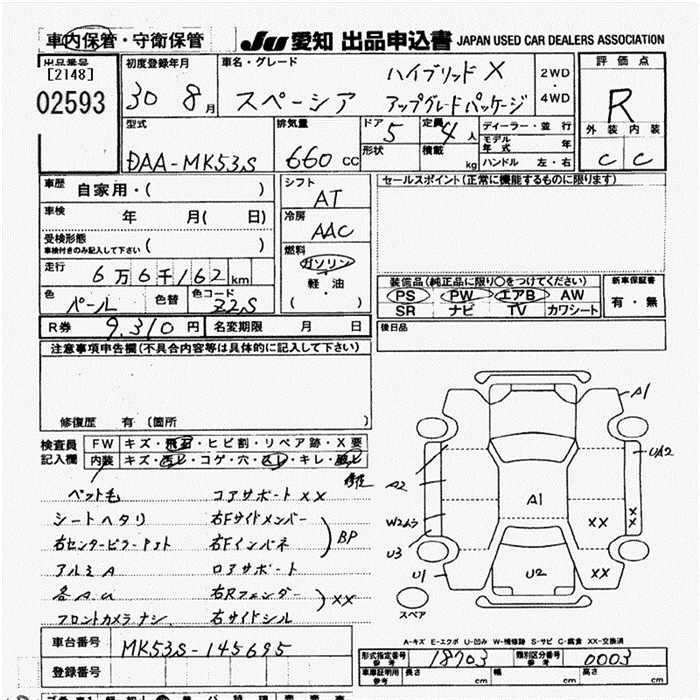 車内保管・守衛保管
JU 愛知 出品申込書 JAPAN USED CAR DEALERS ASSOCIATION
出品番号
[2148]
02593
初度登録年月
30 8月
車名・グレード
スペーシア
ハイブリッド X
アップグレードパッケージ
2WD
・
4WD
評価点
R
外装 内装
C C
型式
DAA-MK53S
排気量
660 CC
ドア 5
形状
定員 4人
積載 kg
ディーラー・並行
モデル年式 年
ハンドル 左・右
車歴 自家用・( )
車検 年 月( 日)
受検形態
車検付きのみ記入して下さい ( )
走行 6万6千162km
色 パール 色替 色コード Z2S
R券 9,310円 名変期限 月 日
シフト
AT
冷房
AAC
燃料
ガソリン
軽・油
( ・ )
セールスポイント(正常に機能するものに限ります)
装備品(純正品に限り○をつけてください)
PS PW エアB AW
SR ナビ TV カワシート
新車保証書
有・無
後日品
注意事項申告欄(不具合内容等は具体的に記入して下さい)
修復歴 有 (箇所 )
検査員
記入欄
FW キズ・飛石・ヒビ割・リペア跡・X要
内装 キズ・汚レ・コゲ・穴・スレ・キレ・
ペット毛
シートヘタリ
右センターピラー
アルミA
各A.U
フロントカメラナシ
コアサポートXX
右Fサイドメンバー
右Fインパネ
BP
ロアサポート
右Rフェンダー
右サイドシル
XX
A1
UA2
A2
A1
W2ムラ
XX
XX
U3
U1
U2
XX
スペア
A-キズ E-エクボ U-凹み W-補修跡 S-サビ C-腐食 XX-交換済
車台番号 MK53S-145695
登録番号
形式指定番号
参考
18703
類別区分番号
参考
0003
車庫証明用
参考
長さ cm 幅 cm 高さ cm